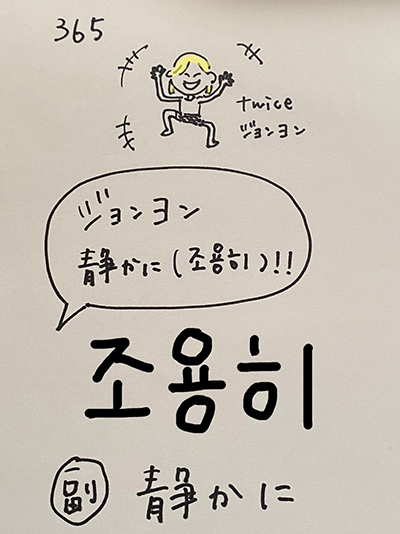 365
twice
ジョンヨン
ジョンヨン
静かに(조용히)!!
조용히
副 静かに